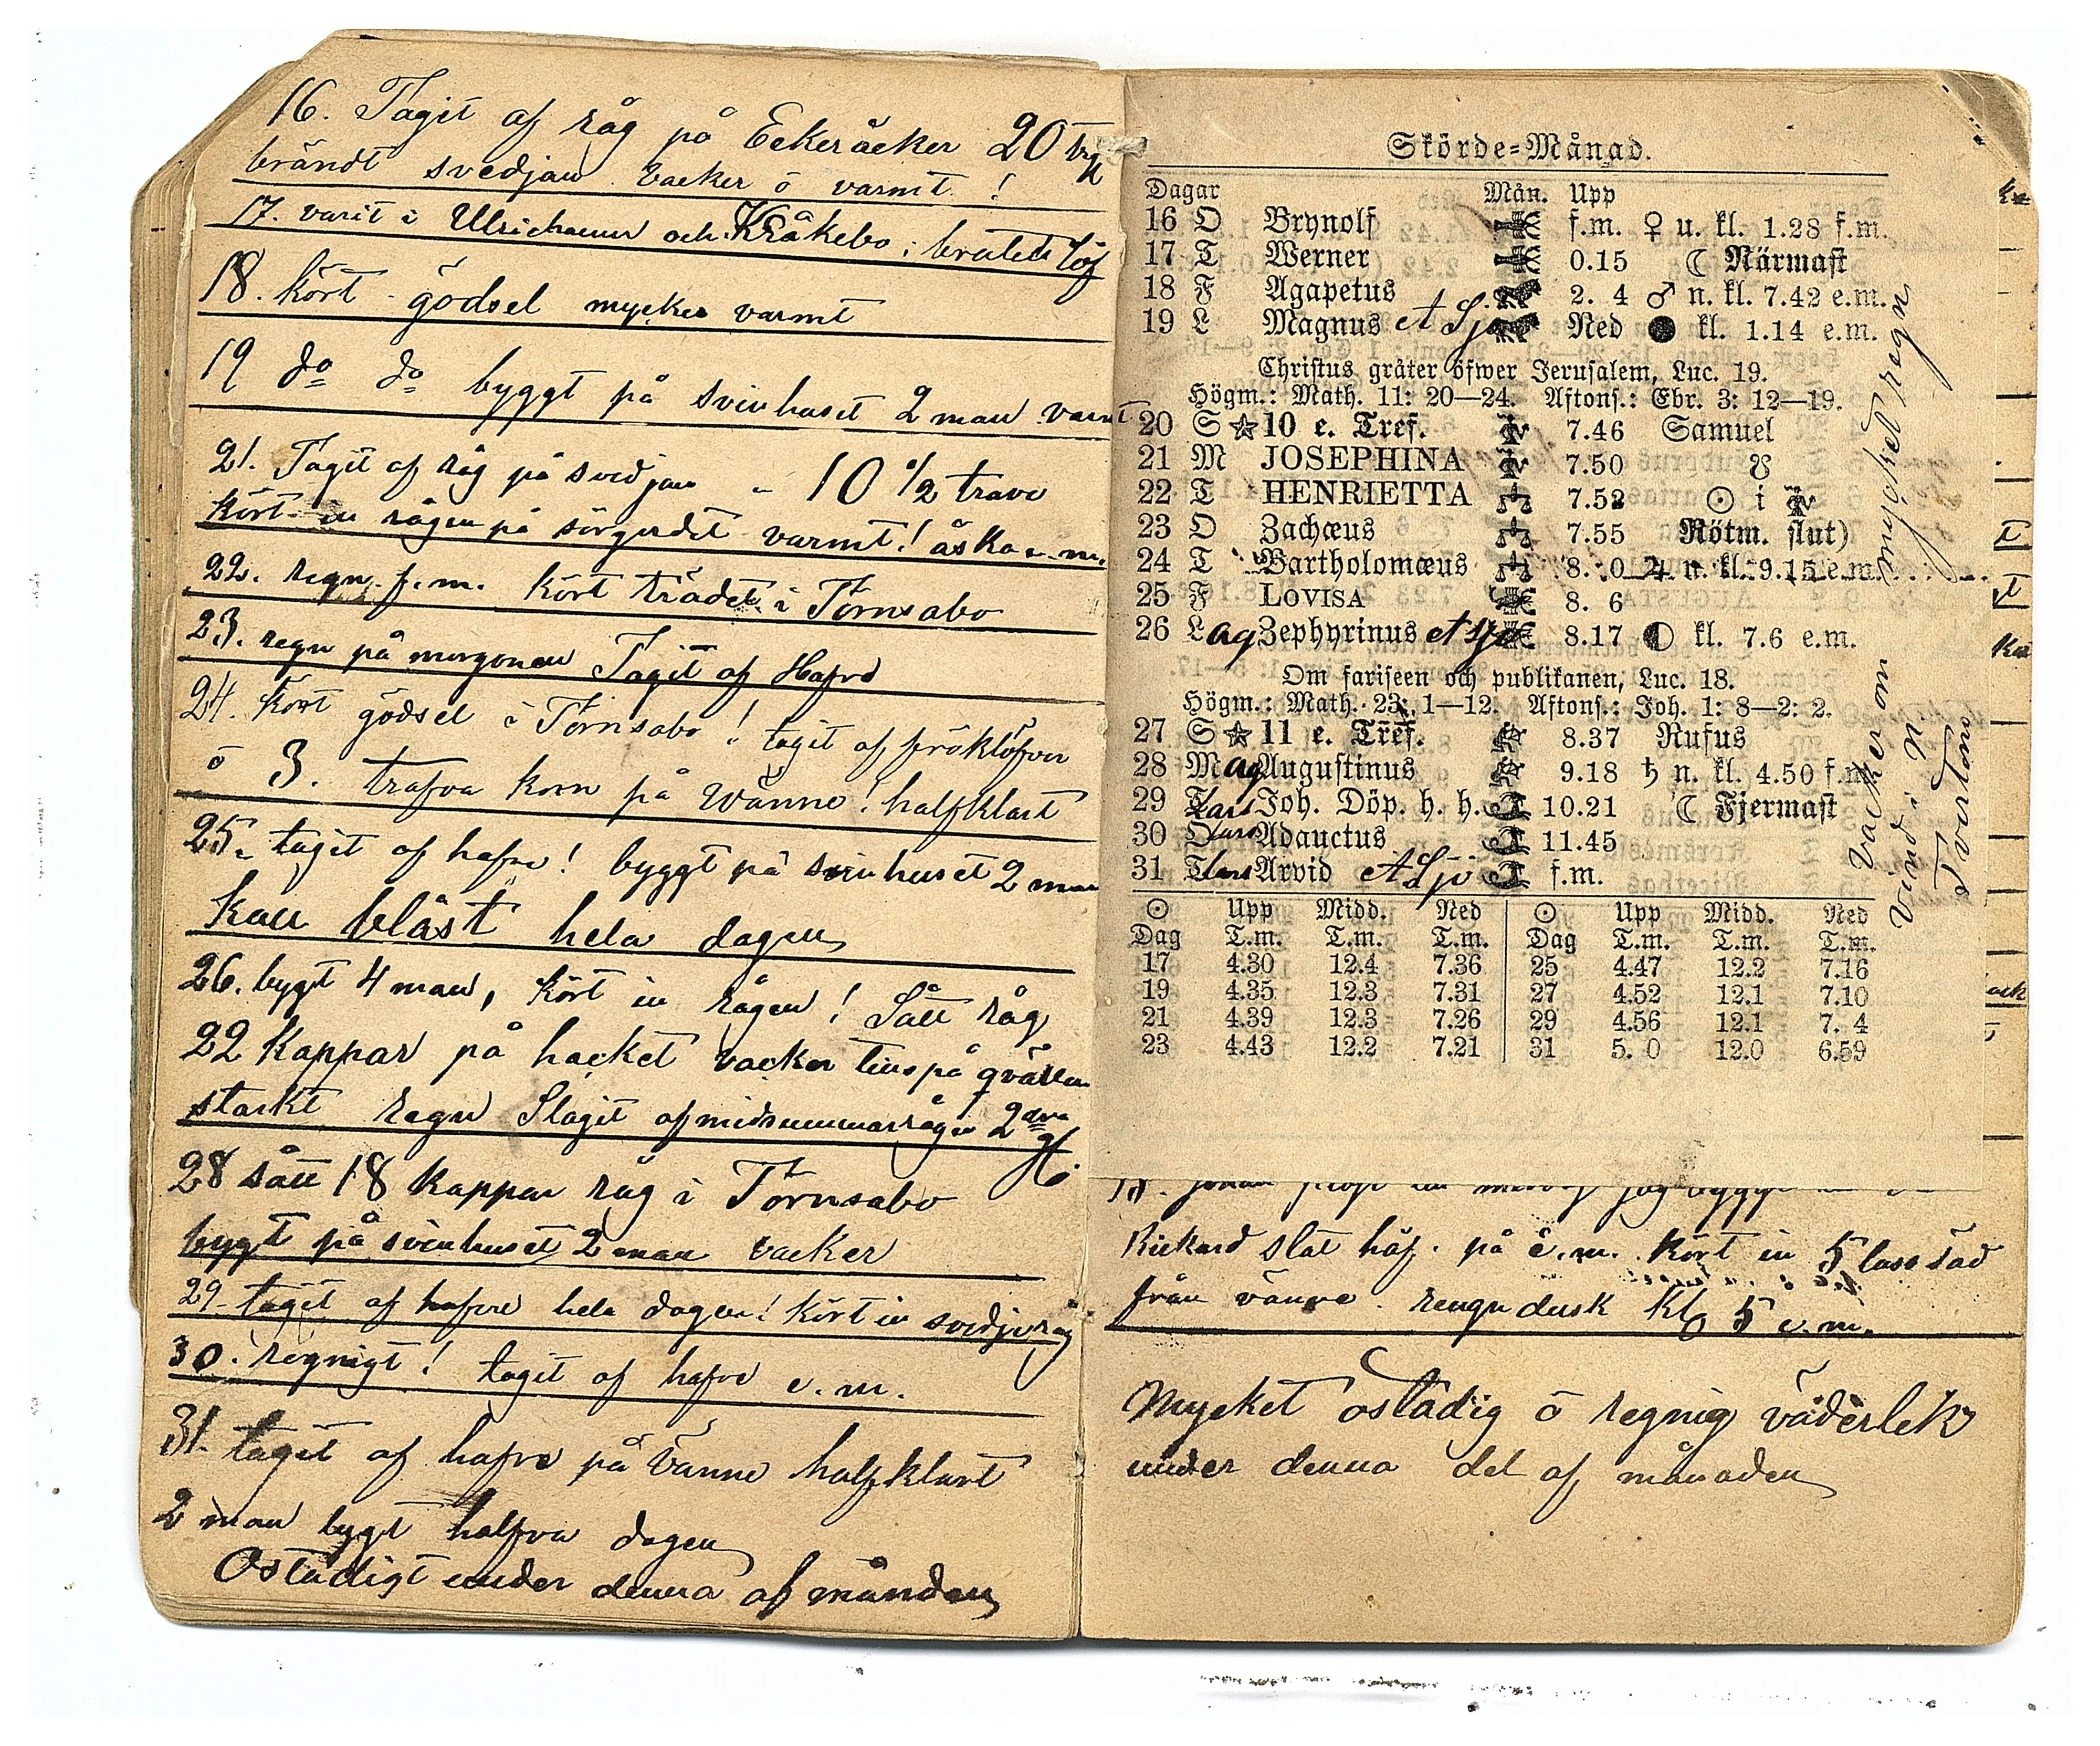 16. Tagit af råg på Eckeråcker 20 trf
brändt svedjan vacker o varmt !
17. varit i Ulricham och Kråkebo; brutit löf
18. kört gödsel mycket varmt
19 do do byggt på svinhuset 2 man varmt
21. Tagit af råg på svedjan " 10 1/2 trave
kört in rågen på sörgerdet varmt! åska e.m.
22. regn f.m. kört trädet i Törnsabo
23. regn på morgonen Tagit af Hafre
24. Kört gödsel i Törnsabo! tagit af fröklöfver
o 3. trafva korn på Vänne! halfklart
25. tagit af hafre! byggt på svinhuset 2 man
kall blåst hela dagen
26. bygt 4 man, kört in rågen! Sått råg
22 Kappar på hacket vacker tills på qvällen
starkt regn Slagit af midsummarrågen 2dra
28 sått 18 kappar råg i Törnsabo
bygt på svinhuset 2 man vacker
29. tagit af hafre hela dagen! kört in svedjeråg
30. regnigt! tagit af hafre e.m.
31. tagit af hafre på Vänne halfklart
2 man bygt halfva dagen
Ostadigt under denna af månden
Skörde-Månad.
Dagar Mån. Upp
16 O Brynolf f.m. ♀ u. kl. 1.28 f.m.
17 T Werner 0.15 ☾ Närmast
18 F Agapetus 2. 4 ♂ n. kl. 7.42 e.m.
19 L Magnus A Sjö Ned ● kl. 1.14 e.m.
Christus gråter öfwer Jerusalem, Luc. 19.
Högm.: Math. 11: 20—24. Aftons.: Ebr. 3: 12—19.
20 S ☆ 10 e. Tref. 7.46 Samuel
21 M JOSEPHINA 7.50 ☋
22 T HENRIETTA 7.52 ☉ i ♍
23 O Zachæus 7.55 Rötm. slut)
24 T Bartholomæus 8. 0 ♃ n. kl. 9.15 e.m.
25 F LOVISA 8. 6
26 L ag Zephyrinus A Sjö 8.17 ◐ kl. 7.6 e.m.
Om fariseen och publikanen, Luc. 18.
Högm.: Math. 23: 1—12. Aftons.: Joh. 1: 8—2: 2.
27 S ☆ 11 e. Tref. 8.37 Rufus
28 M ag Augustinus 9.18 ♄ n. kl. 4.50 f.m.
29 T Lars Joh. Döp. h. h. 10.21 ☾ Fjermast
30 O Lars Adauctus 11.45
31 T Lars Arvid A Sjö f.m.
☉ Upp Midd. Ned ☉ Upp Midd. Ned
Dag T.m. T.m. T.m. Dag T.m. T.m. T.m.
17 4.30 12.4 7.36 25 4.47 12.2 7.16
19 4.35 12.3 7.31 27 4.52 12.1 7.10
21 4.39 12.3 7.26 29 4.56 12.1 7. 4
23 4.43 12.2 7.21 31 5. 0 12.0 6.59
vacker om mycket regn
vind i N
Rickard slat håf. på e.m. kört in 5 lass säd
från vänne. rengn dusk Kl 5 e.m.
Mycket ostadig o regnig väderlek
under denna del af månaden